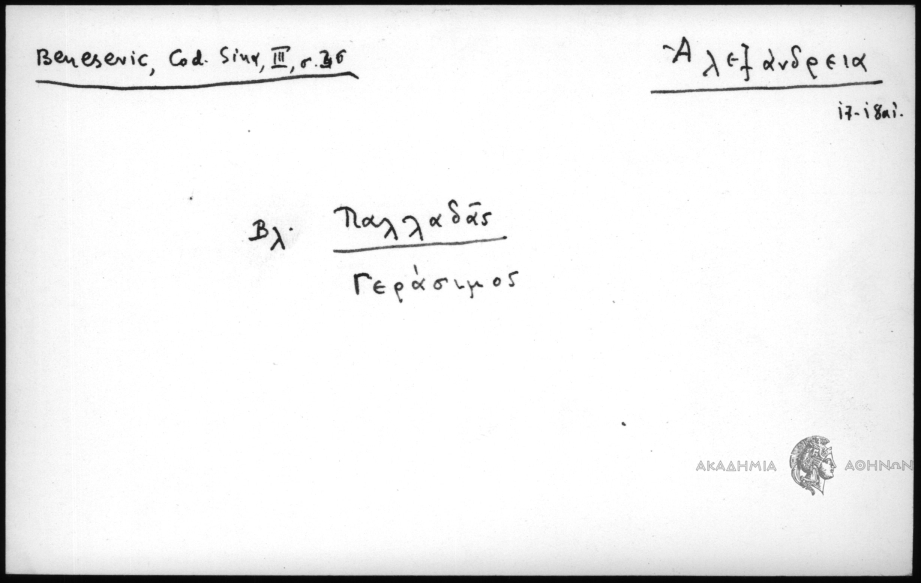 Benesevic, Cod. Sina, III, σ.
Ἀλεξάνδρεια
17-18 αἰ.
Βλ. Παλλαδᾶς
Γεράσιμος
ΑΚΑΔΗΜΙΑ ΑΘΗΝΩΝ